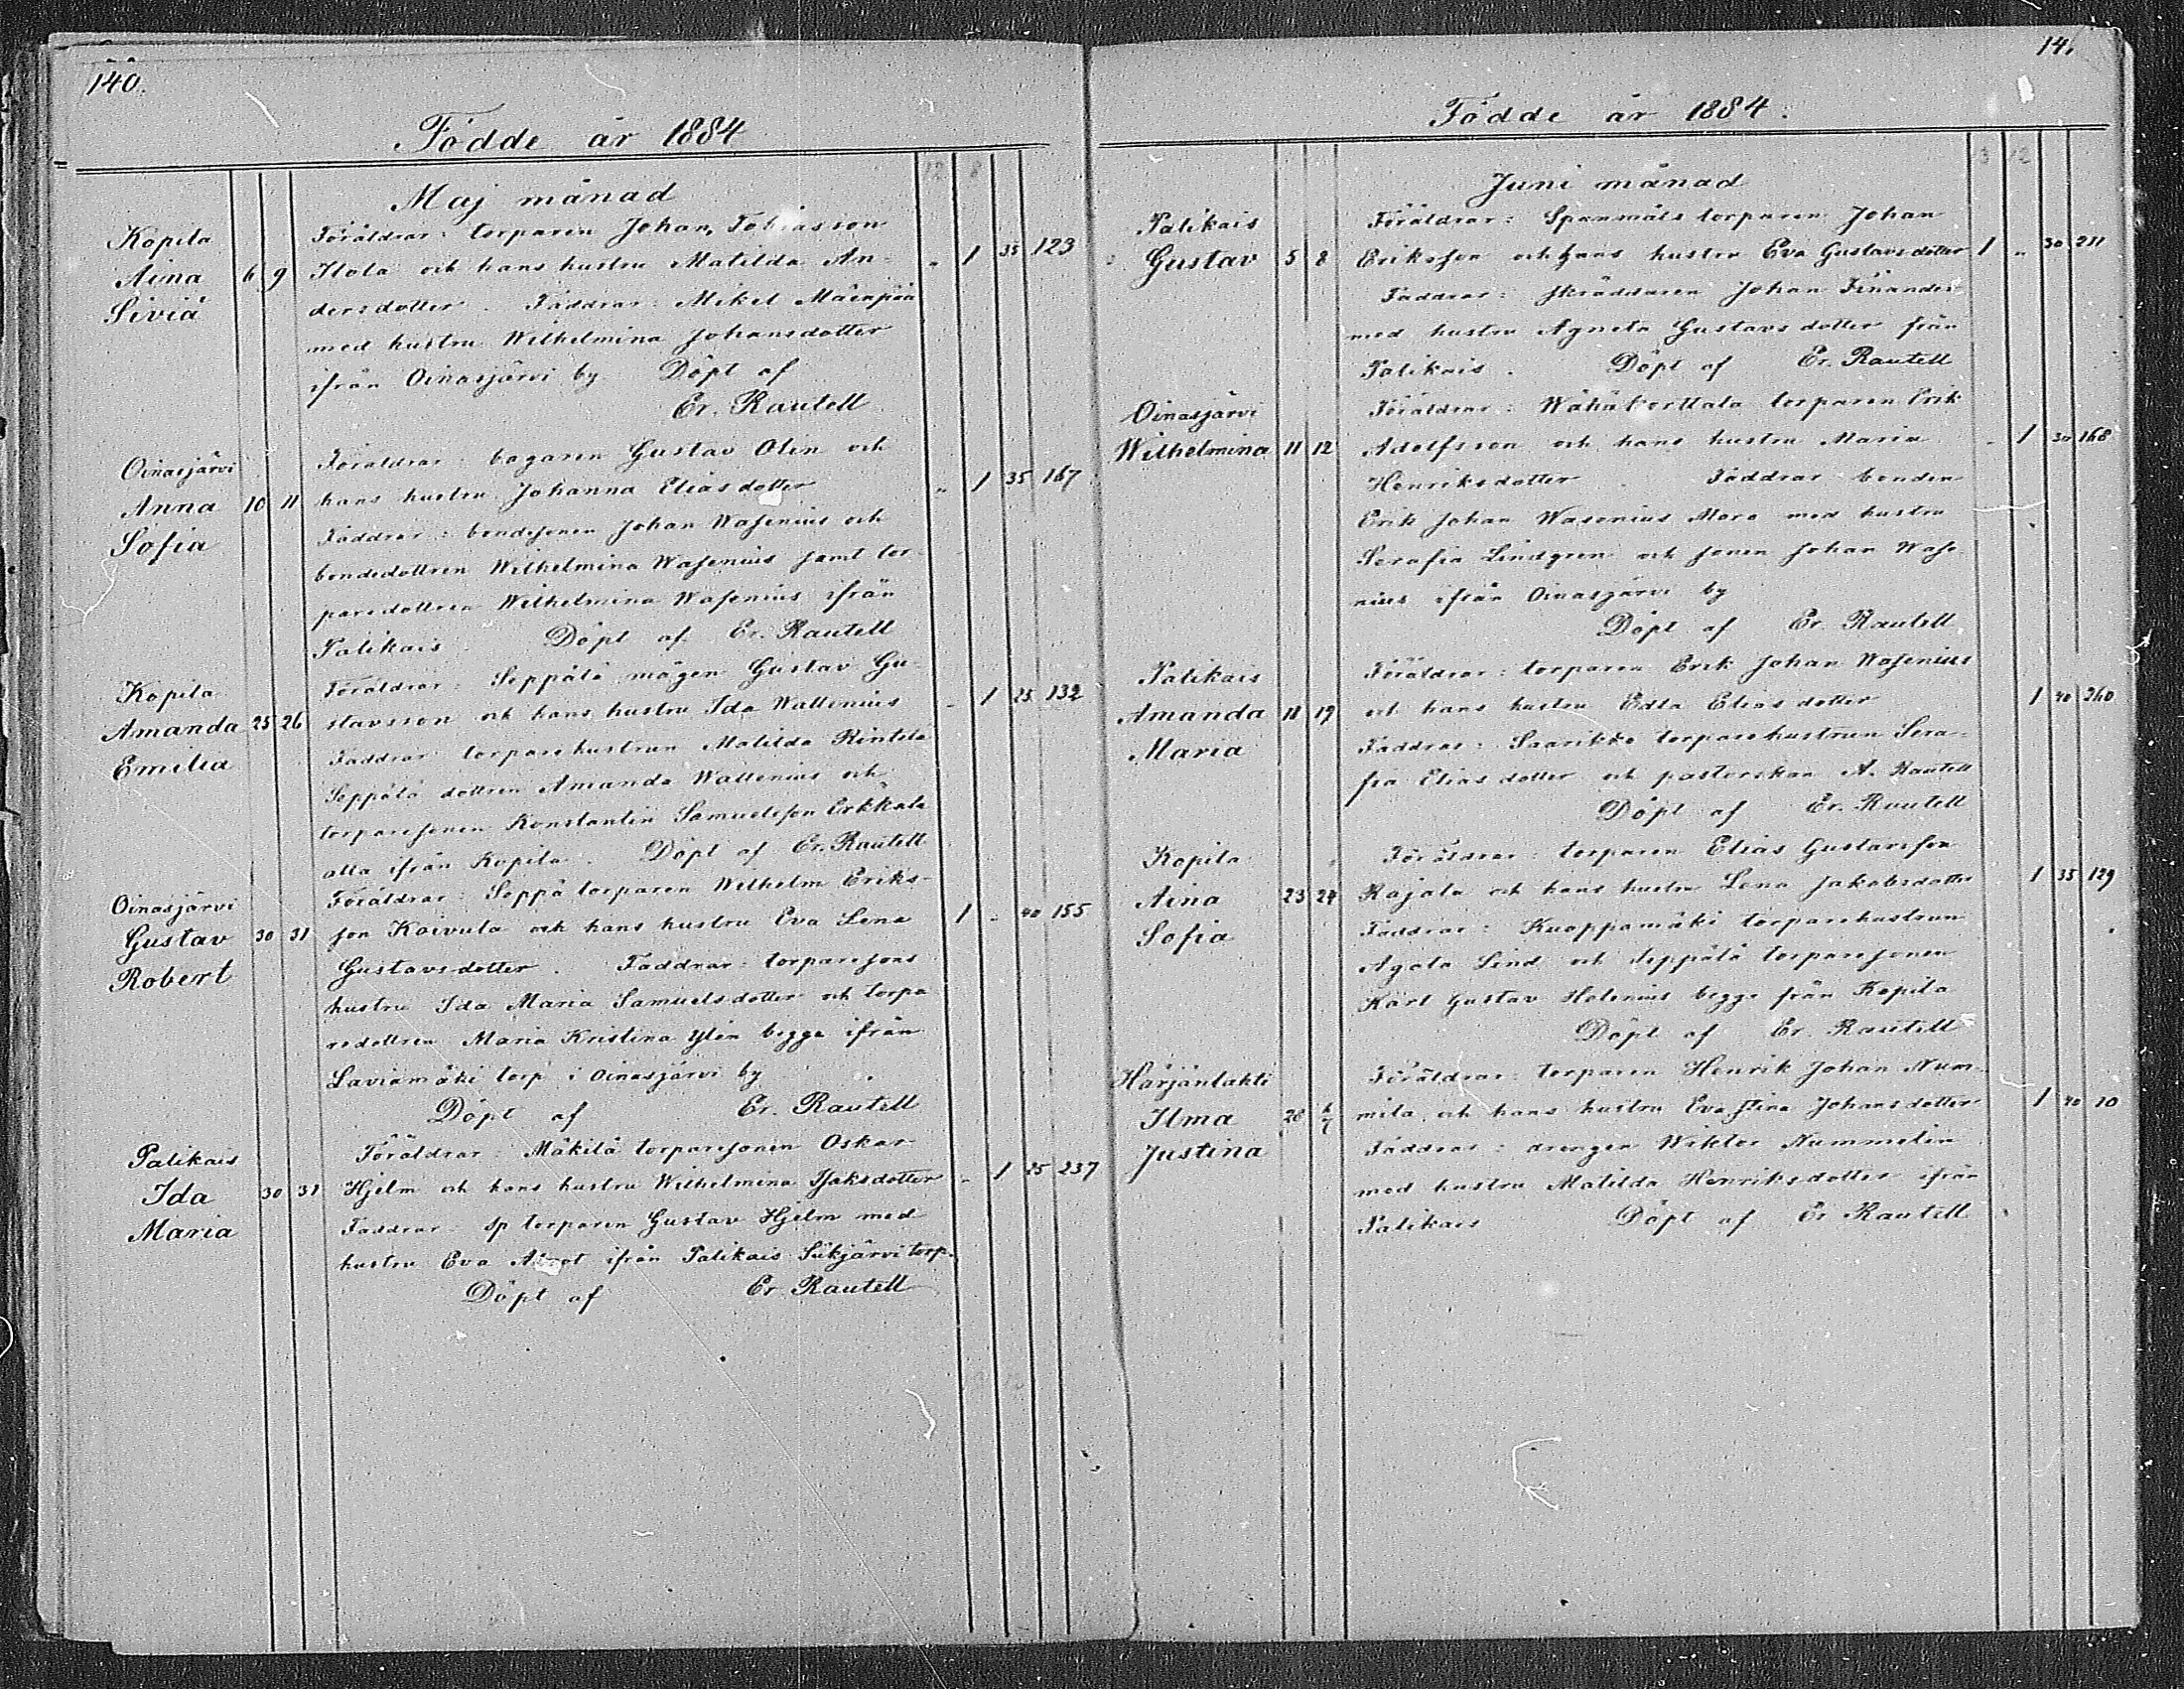 140.
Födde år 1884
12 8
Maj månad
Kopila
Aina 6 9
Siviä
Föräldrar: torparen Johan Tobiasson
Ilola och hans hustru Matilda An- „ 1 35 123
dersdotter. Faddrar: Mikel Mäenpää
med hustru Wilhelmina Johansdotter
ifrån Oinasjärvi by. Döpt af
Er. Rautell
Oinasjärvi
Anna 10 11
Sofia
Föräldrar: bagaren Gustav Olin och
hans hustru Johanna Eliasdotter „ 1 35 167
Faddrar: bondesonen Johan Wasenius och
bondedottren Wilhelmina Wasenius samt tor-
paredottren Wilhelmina Wasenius ifrån
Palikais. Döpt af Er. Rautell
Kopila
Amanda 25 26
Emilia
Föräldrar: Seppälä mågen Gustav Gu-
stavsson och hans hustru Ida Wallenius „ 1 25 132
Faddrar torparehustrun Matilda Rintela
Seppälä dottren Amanda Wallenius och
torparesonen Konstantin Samuelsson Erkkala
alla ifrån Kopila. Döpt af Er. Rautell
Oinasjärvi
Gustav 30 31
Robert
Föräldrar: Seppä torparen Wilhelm Eriks-
son Koivula och hans hustru Eva Lena 1 „ 40 155
Gustavsdotter. Faddrar: torparesons
hustru Ida Maria Samuelsdotter och torpa
redottren Maria Kristina Ylén begge ifrån
Laviamäki torp i Oinasjärvi by
Döpt af Er. Rautell
Palikais
Ida 30 31
Maria
Föräldrar: Mäkilä torparesonen Oskar
Hjelm och hans hustru Wilhelmina Isaksdotter „ 1 25 237
Faddrar: sp torparen Gustav Hjelm med
hustru Eva ifrån Palikais Siikjärvi torp.
Döpt af Er. Rautell
14
Födde år 1884.
3 12
Juni månad
Palikais
Gustav 5 8
Föräldrar: Spanmåls torparen Johan
Eriksson och hans hustru Eva Gustavsdotter 1 „ 30 211
Faddrar: skräddaren Johan Finander
med hustru Agneta Gustavsdotter från
Palikais. Döpt af Er. Rautell
Oinasjärvi
Wilhelmina 11 12
Föräldrar: Wähäkorttala torparen Erik
Adolfsson och hans hustru Maria „ 1 30 168
Henriksdotter. Faddrar bonden
Erik Johan Wasenius Moro med hustru
Serafia Lindgren och sonen Johan Wase-
nius ifrån Oinasjärvi by
Döpt af Er. Rautell
Palikais
Amanda 18 19
Maria
Föräldrar: torparen Erik Johan Wasenius
och hans hustru Edla Eliasdotter 1 40 260
Faddrar: Saarikko torparehustrun Sera-
fia Eliasdotter och pastorskan A. Rautell
Döpt af Er. Rautell
Kopila
Aina 23 24
Sofia
Föräldrar: torparen Elias Gustavsson
Rajala och hans hustru Lena Jakobsdotter 1 35 129
Faddrar: Kuoppamäki torparehustrun
Agata Lind och Seppälä torparesonen
Karl Gustav Helenius begge från Kopila
Döpt af Er. Rautell
Härjänlahti
Ilma 28
Justina
Föräldrar: torparen Henrik Johan Num-
mila och hans hustru Eva Stina Johansdotter 1 40 10
Faddrar: drengen Wiktor Nummelin
med hustru Matilda Henriksdotter ifrån
Palikais Döpt af Er. Rautell